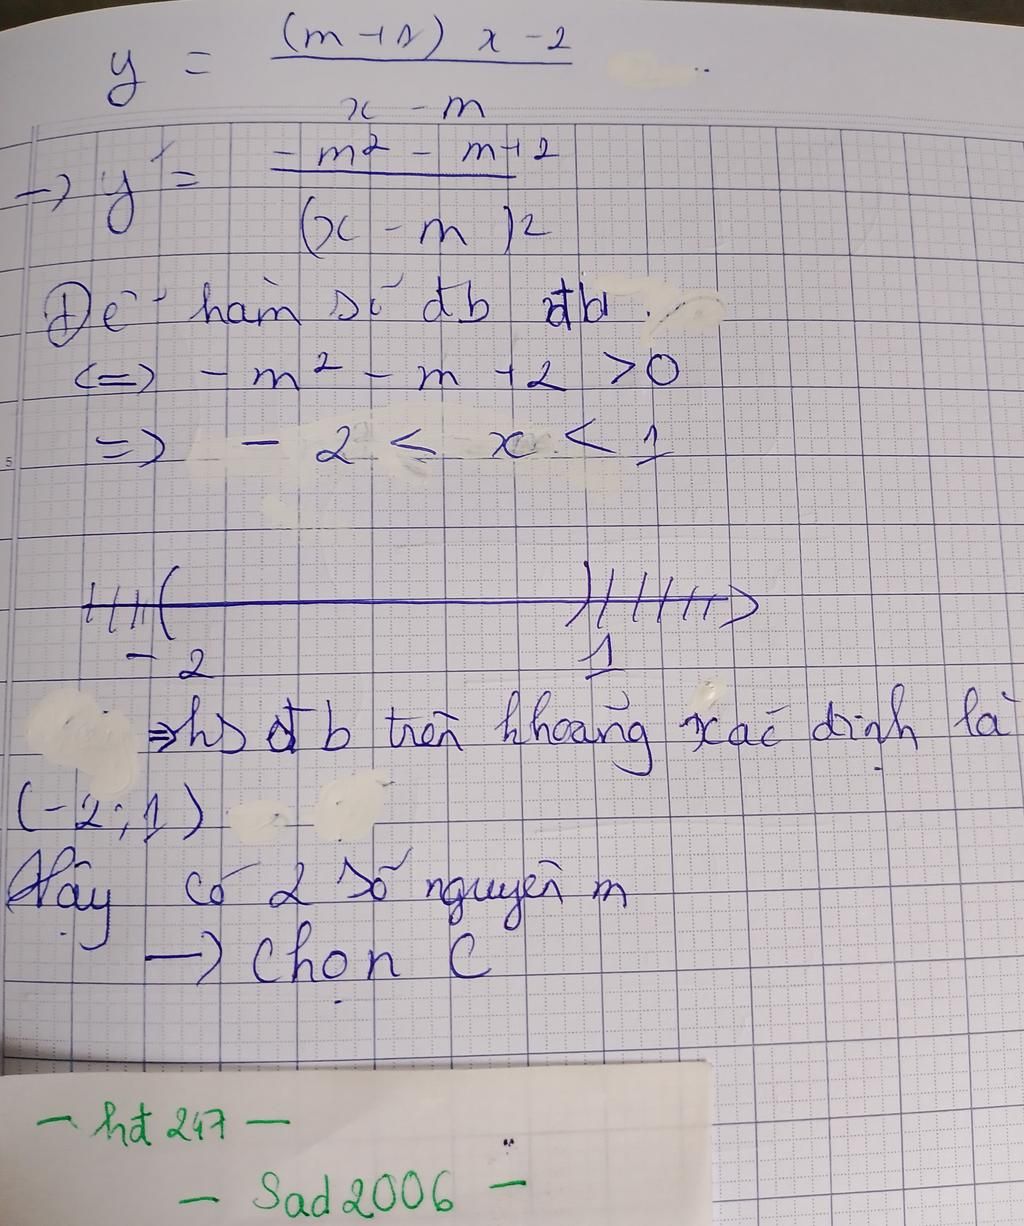 y = \frac{(m+1) x - 2}{x - m}
→ y' = \frac{-m² - m + 2}{(x - m)²}
Để hàm số đb đb
<=> - m² - m + 2 > 0
=> - 2 < x < 1
- 2 1
=> hs đb trên khoảng xác định là
(-2; 1)
Vậy có 2 số nguyên m
→ Chọn C
- hđ 247 -
- Sad2006 -